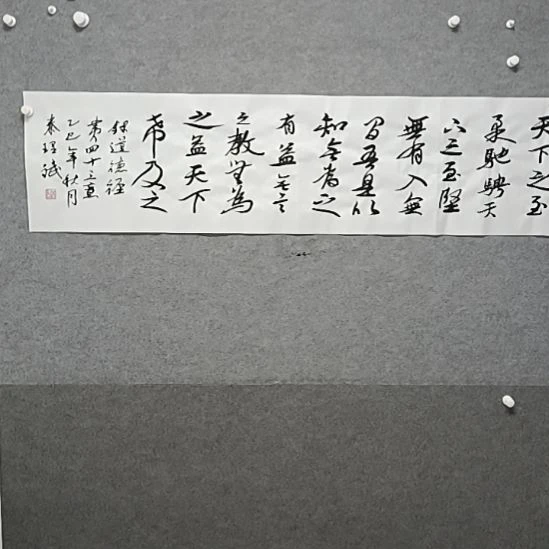 天下之至
柔馳騁天
下之至堅
無有入無
間吾是以
知無為之
有益不言
之教無為
之益天下
希及之
錄道德經
第四十三章
乙巳年秋月